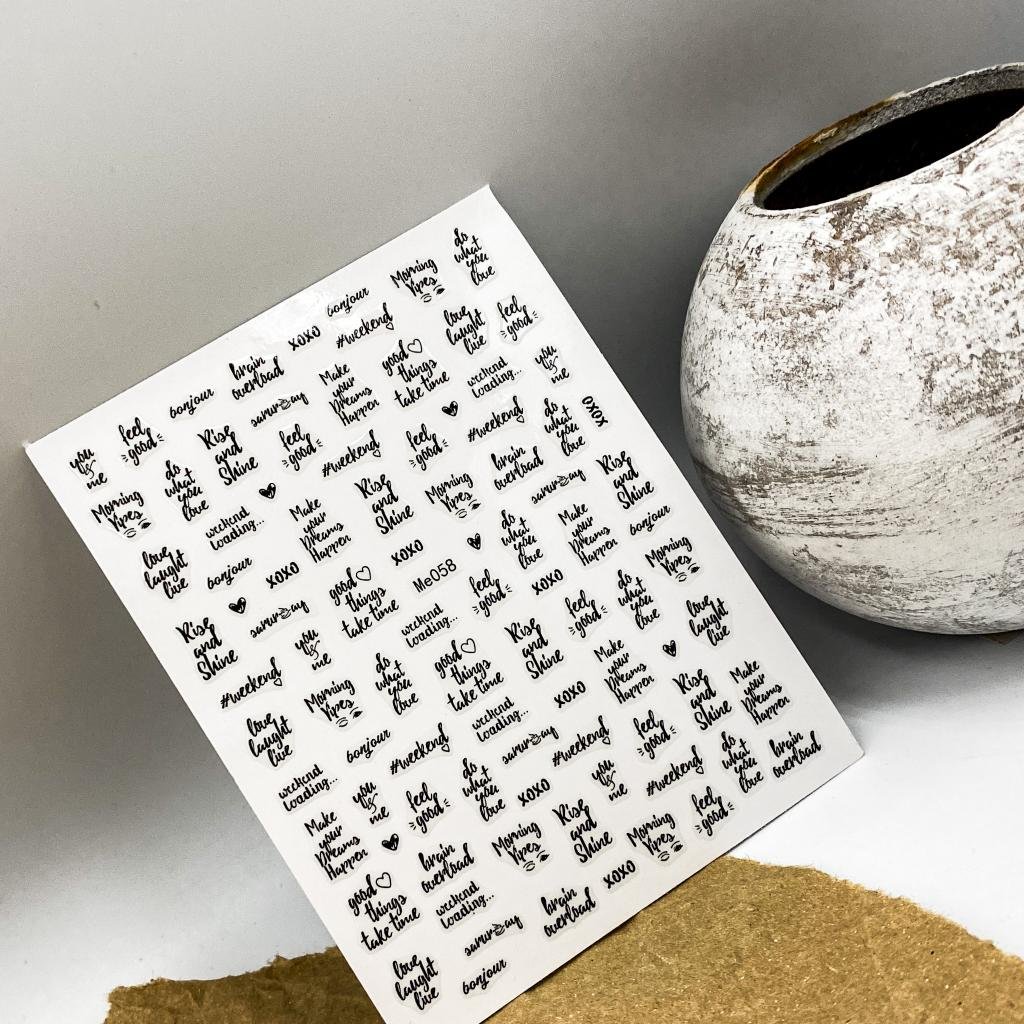 do
what
you
love
Morning
Vipes
bonjour
xoxo
#weekend
love
laught
live
feel
good
brain
overload
bonjour
feel
good
you
is
me
saturday
Make
your
Dreams
Happen
good
things
take time
weekend
loading...
you
is
me
Rise
and
Shine
feel
good
#weekend
feel
good
#weekend
do
what
you
love
xoxo
Morning
Vipes
do
what
you
love
weekend
loading...
Make
your
Dreams
Happen
Rise
and
Shine
Morning
Vipes
brain
overload
saturday
Rise
and
Shine
love
laught
live
bonjour
xoxo
good
things
take time
xoxo
Me058
do
what
you
love
Make
your
Dreams
Happen
bonjour
Rise
and
Shine
saturday
you
is
me
weekend
loading...
feel
good
xoxo
feel
good
do
what
you
love
Morning
Vipes
#weekend
Morning
Vipes
do
what
you
love
good
things
take time
Rise
and
Shine
love
laught
live
love
laught
live
bonjour
#weekend
weekend
loading...
saturday
xoxo
Make
your
Dreams
Happen
Rise
and
Shine
Make
your
Dreams
Happen
weekend
loading...
you
is
me
feel
good
do
what
you
love
xoxo
#weekend
you
is
me
feel
good
#weekend
do
what
you
love
brain
overload
Make
your
Dreams
Happen
brain
overload
Morning
Vipes
Rise
and
Shine
Morning
Vipes
feel
good
good
things
take time
weekend
loading...
saturday
brain
overload
xoxo
love
laught
live
bonjour